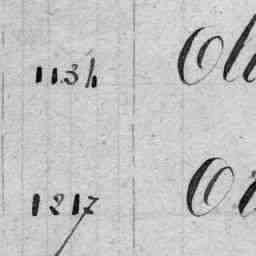 1134 Oll
1217 O